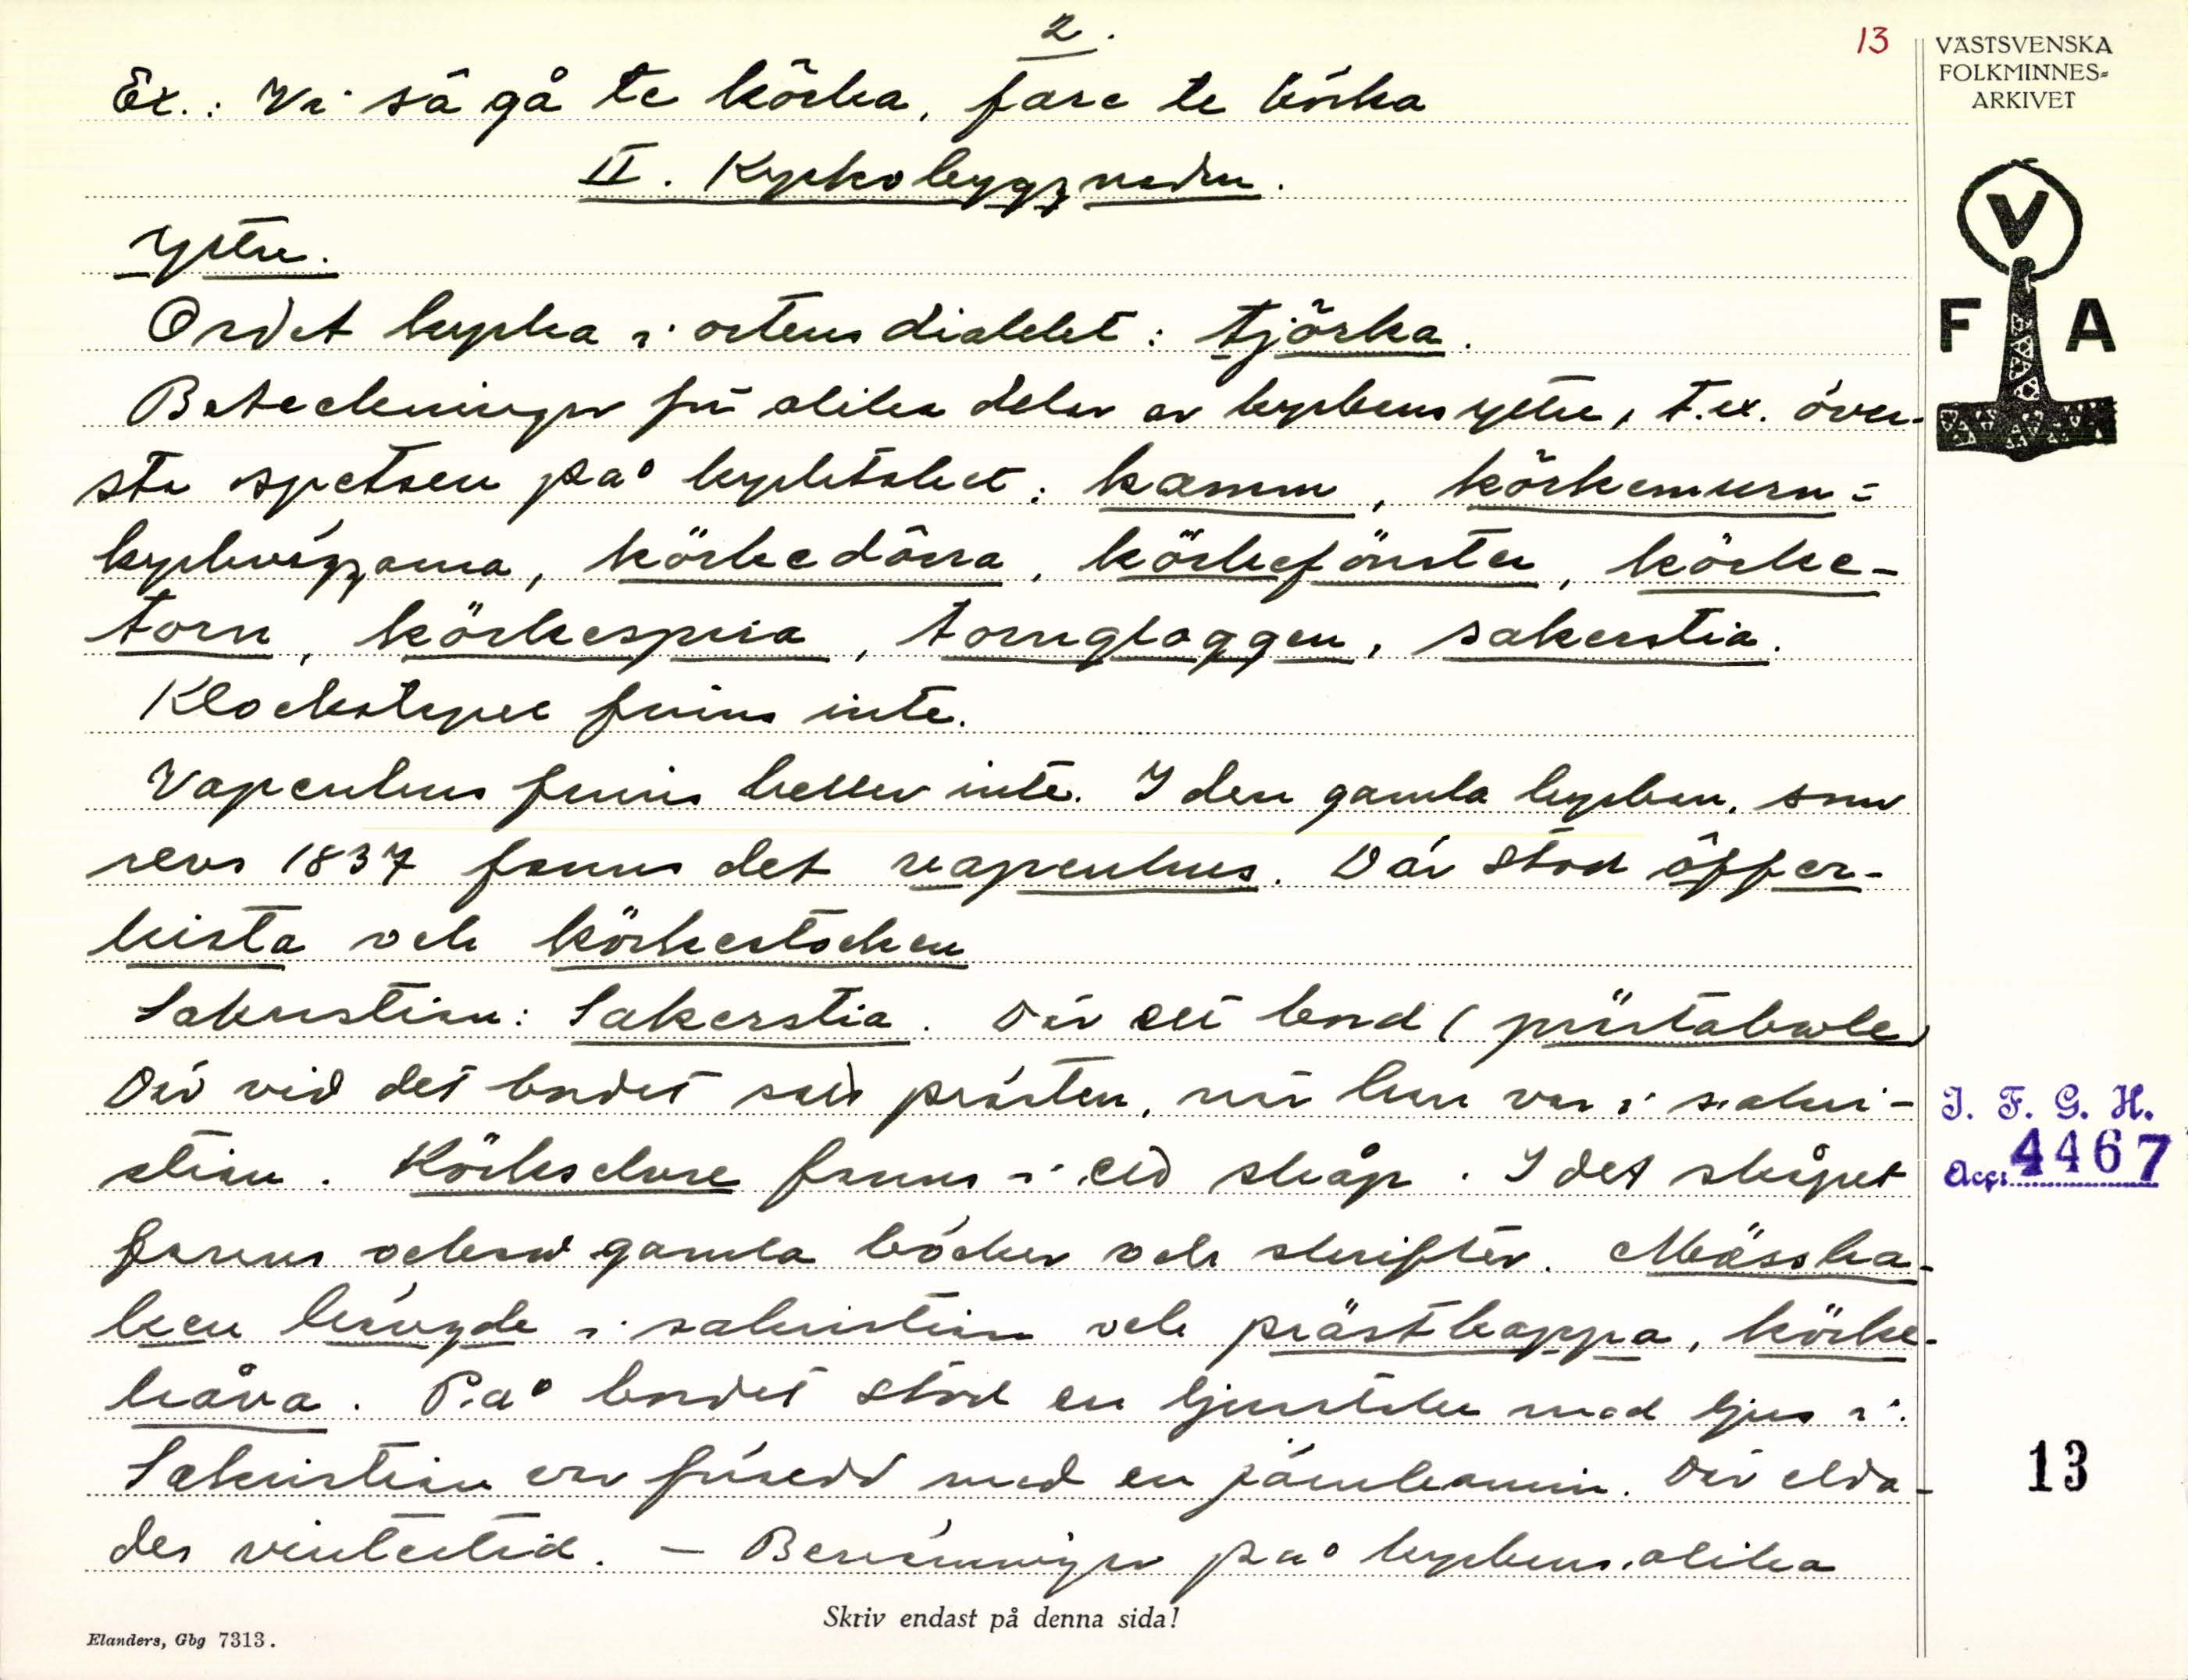 2.
13
VÄSTSVENSKA
FOLKMINNES-
ARKIVET
Ex.: Vi sâ gå te körka, fare te körka
II. Kyrkobyggnaden.
Yttre.
V
F A
Ordet kyrka i ortens dialekt: tjörka.
Beteckningar för olika delar av kyrkans yttre, t.ex. över-
sta spetsen på kyrktaket: kamm, körkemurn=
kyrkväggarna, körkedörra, körkefönster, körke-
torn, körkespira, torngloggen, sakerstia.
Klockstapel finns inte.
Vapenhus finns heller inte. I den gamla kyrkan, som
revs 1837 fanns det vapenhus. Där stod öffer-
kista och körkestocken
Sakristian: Sakerstia. Där ett bord (prästabole)
Där vid det bordet satt prästen, när han var i sakri-
stian. Körkeselvre fanns i ett skåp. I det skåpet
fanns också gamla böcker och skrifter. Mässha-
ken hängde i sakristian och prästkappa, körke-
håva. På bordet stod en ljusstake med ljus i.
Sakristian var försedd med en järnkamin. Där elda-
des vintertid. – Benämningar på kyrkans olika
J. F. G. H.
Acc: 4467
13
Skriv endast på denna sida!
Elanders, Gbg 7313.